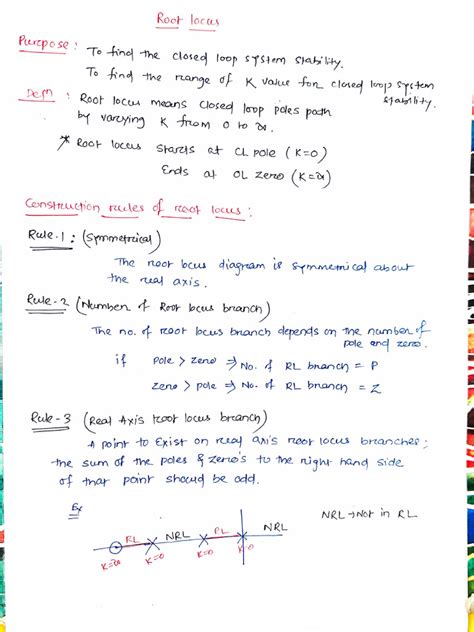 Root locus
Purpose : To find the closed loop system stability.
To find the range of K value for closed loop system stability.
Defn : Root locus means closed loop poles path
by varying K from 0 to ∞.
* Root locus starts at CL pole (K=0)
Ends at OL zero (K=∞)
Construction rules of root locus :
Rule-1 : (Symmetrical)
The root locus diagram is symmetrical about
the real axis.
Rule-2 (Number of Root locus branch)
The no. of root locus branch depends on the number of
pole and zero.
if pole > zero ⇒ No. of RL branch = P
zero > pole ⇒ No. of RL branch = Z
Rule-3 (Real Axis root locus branch)
A point to Exist on real axis root locus branches;
the sum of the poles & zero's to the right hand side
of that point should be odd.
Ex NRL → Not in RL
RL NRL RL NRL
K=∞ K=0 K=0 K=0